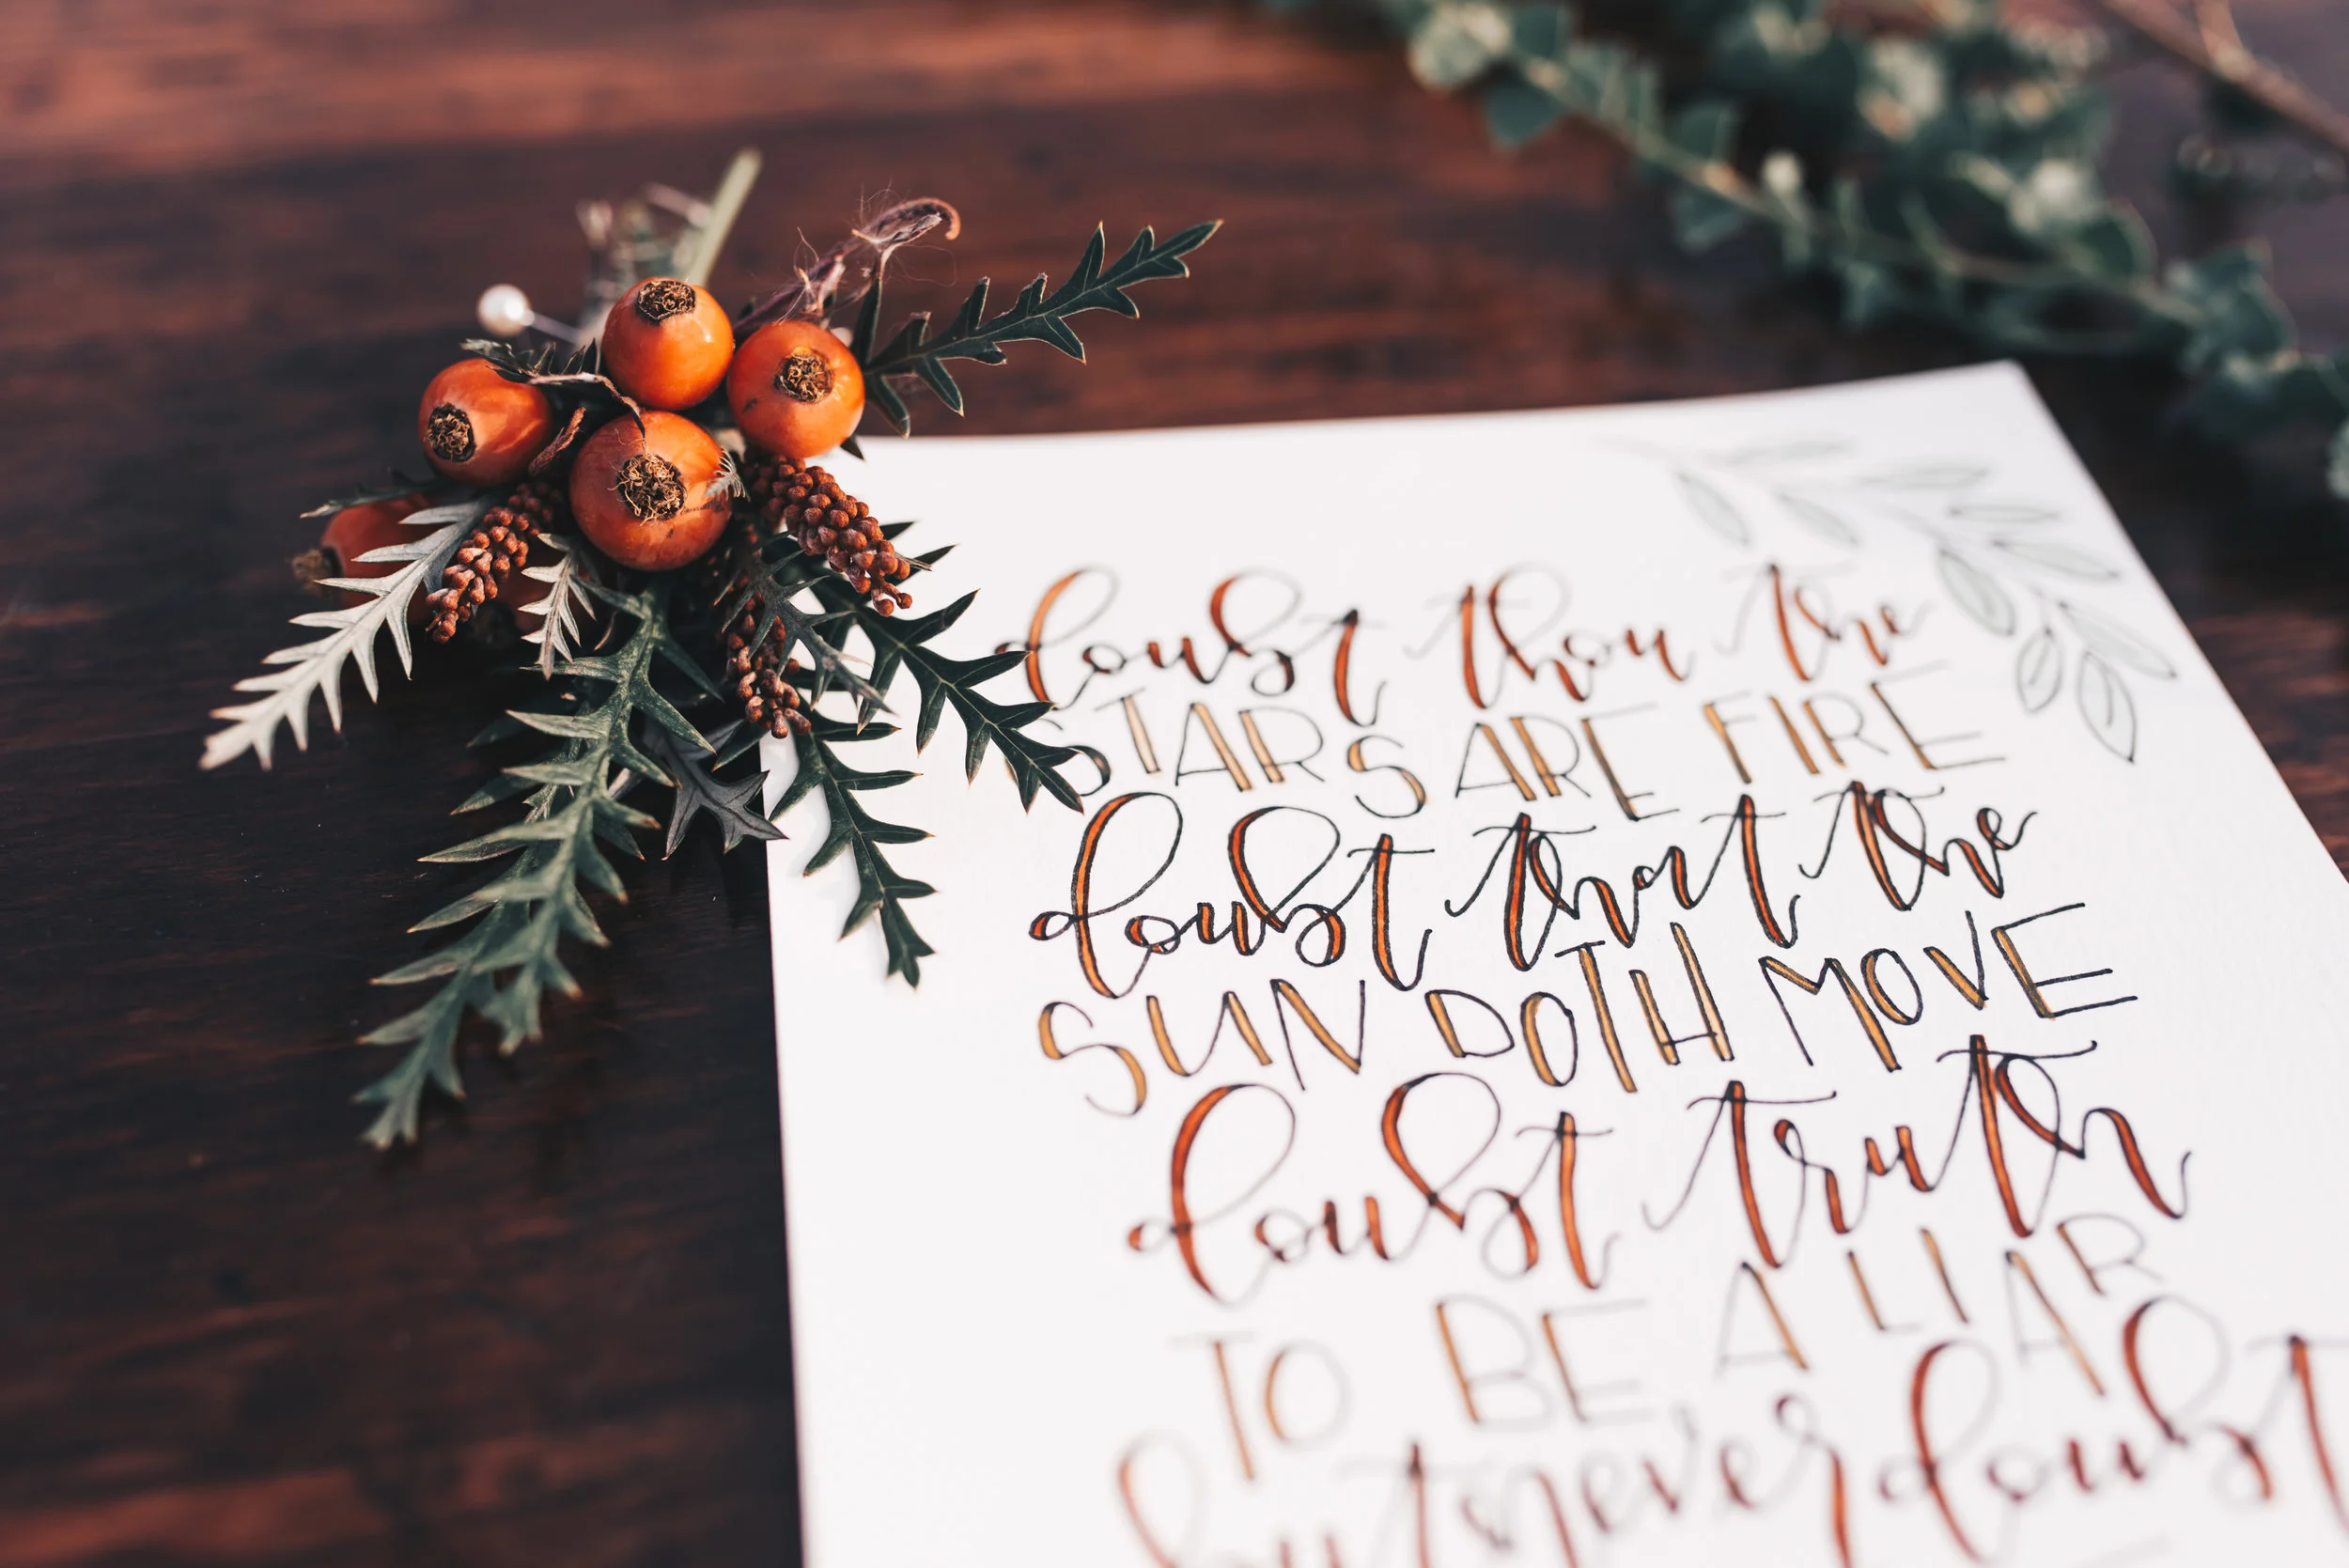 doubt thou the
STARS ARE FIRE
doubt that the
SUN DOTH MOVE
doubt truth
TO BE A LIAR
but never doubt